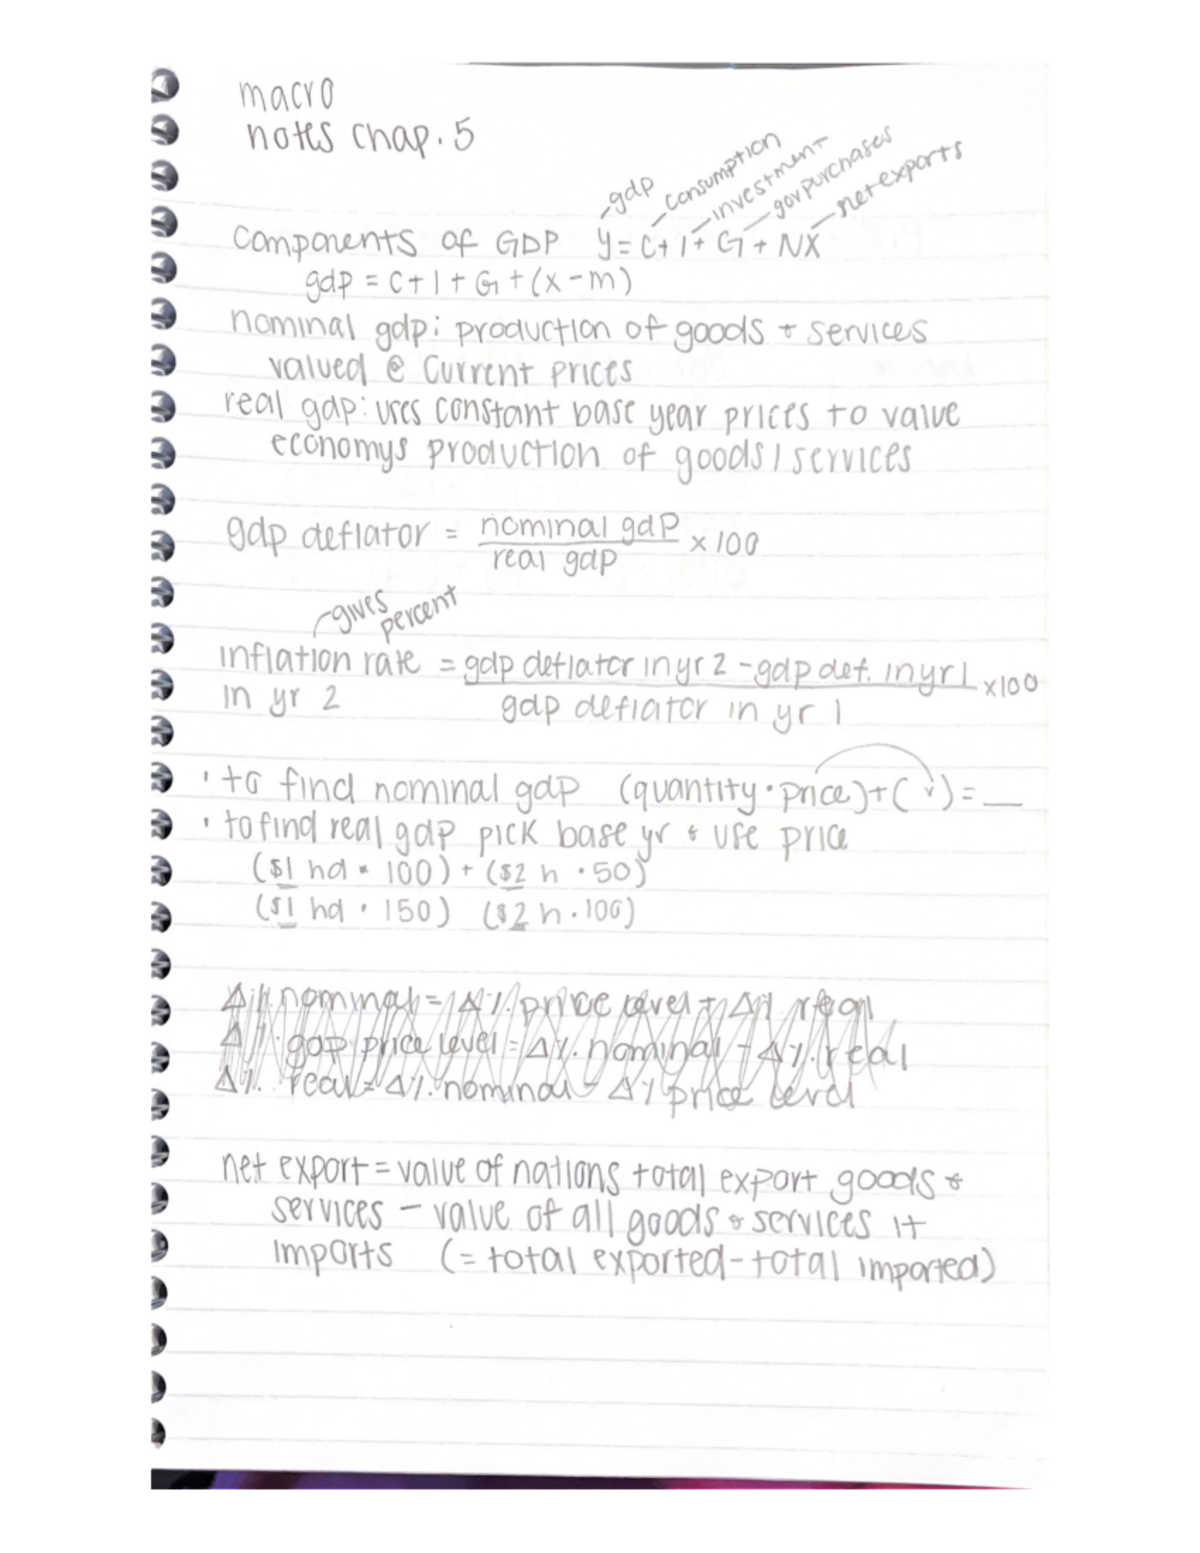 macro
notes chap. 5
gdp consumption investment gov purchases net exports
components of GDP y = C + I + G + NX
gdp = C + I + G + (x - m)
nominal gdp: production of goods + services
valued @ current prices
real gdp: uses constant base year prices to value
economys production of goods / services
gdp deflator = nominal gdp / real gdp x 100
gives percent
inflation rate = gdp deflator in yr 2 - gdp def. in yr 1 x100
in yr 2 gdp deflator in yr 1
• to find nominal gdp (quantity • price) + ( ) = __
• to find real gdp pick base yr & use price
($1 hd • 100) + ($2 h • 50)
($1 hd • 150) ($2 h • 100)
Δ% nominal = Δ% price level + Δ% real
Δ% gdp price level = Δ% nominal - Δ% real
Δ% real = Δ% nominal - Δ% price level
net export = value of nations total export goods &
services - value of all goods & services it
imports (= total exported - total imported)